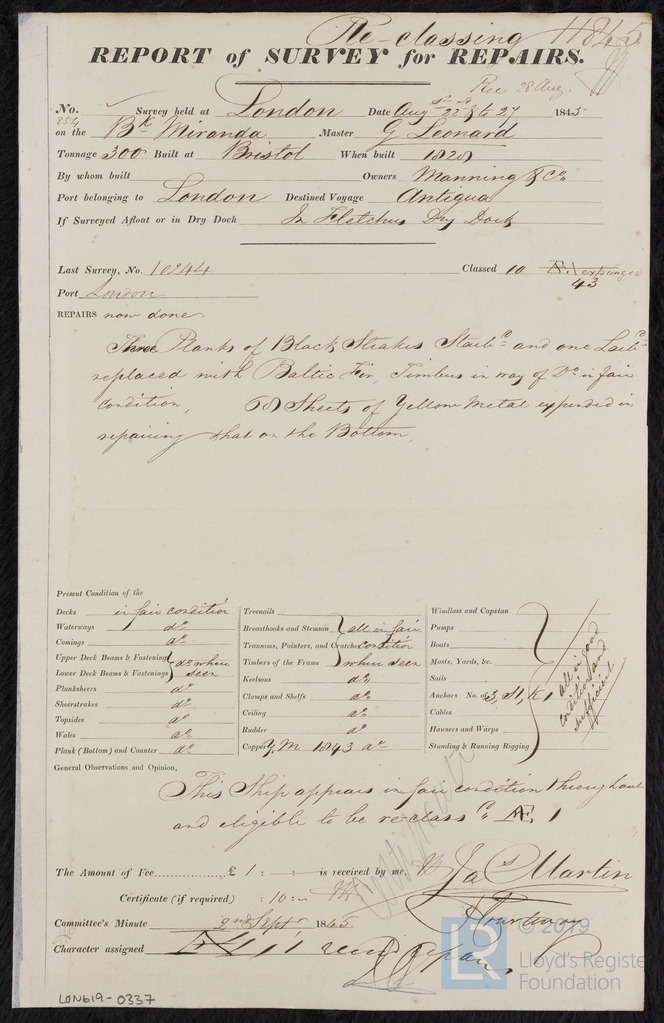 Re-classing 11845
REPORT of SURVEY for REPAIRS.
Rec 28 Aug.
No. 854 Survey held at London Date Aug 22d & 27 1845
on the Bk Miranda Master G Leonard
Tonnage 300 Built at Bristol When built 1828
By whom built Owners Manning & Co
Port belonging to London Destined Voyage Antigua
If Surveyed Afloat or in Dry Dock In Fletchers Dry Dock
Last Survey, No. 10244 Classed 10 Æ 1 expunged
43
Port London
REPAIRS now done.
Three Planks of Black Strakes Starbd and one Larbd
replaced with Baltic Fir, Timbers in way of Do in fair
condition, 68 Sheets of Yellow Metal expended in
repairing that on the Bottom.
Present Condition of the
Decks in fair condition
Waterways do
Comings do
Upper Deck Beams & Fastenings } do where
Lower Deck Beams & Fastenings } seen
Planksheers do
Sheerstrakes do
Topsides do
Wales do
Plank (Bottom) and Counter do
Treenails
Breasthooks and Stemson } all in fair
Transoms, Pointers, and Crutches condition
Timbers of the Frame } where seen
Keelsons do
Clamps and Shelfs do
Ceiling do
Rudder do
Copper Y.M 1843 do
Windlass and Capstan
Pumps
Boats
Masts, Yards, &c.
Sails
Anchors No. of 3, S1, K1
Cables
Hawsers and Warps
Standing & Running Rigging
all in good
condition and
sufficient
General Observations and Opinion,
This Ship appears in fair condition throughout
and eligible to be re-classd Æ 1
The Amount of Fee £ 1 : is received by me,
Jas Martin
Certificate (if required) : 10 :
Committee's Minute 2nd Septr 1845
Character assigned Æ 1
© 2019
LR
Lloyd's Register
Foundation
LON619-0337